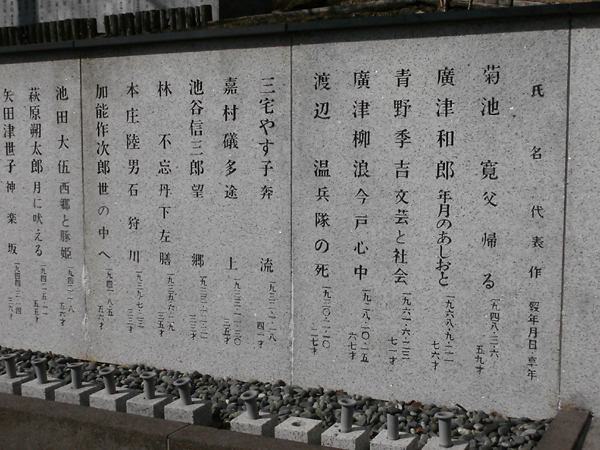 氏名 代表作 歿年月日 享年
菊池 寛 父帰る 一九四八・三・六 五九才
廣津和郎 年月のあしおと 一九六八・九・二一 七六才
青野季吉 文芸と社会 一九六一・六・二三 七一才
廣津柳浪 今戸心中 一九二八・一〇・一五 六七才
渡辺 温 兵隊の死 一九三〇・二・一〇 二七才
三宅やす子 奔流 一九三二・一・一八 四一才
嘉村礒多 途上 三五才
池谷信三郎 望郷 三三才
林 不忘 丹下左膳 一九三五・六・二九 三五才
本庄陸男 石狩川 一九三九・七・二三 三三才
加能作次郎 世の中へ 一九四一・八・五 五六才
池田大伍 西郷と豚姫 一九四二・一・八 五六才
萩原朔太郎 月に吠える 五五才
矢田津世子 神楽坂 一九四四・三・一四 三六才